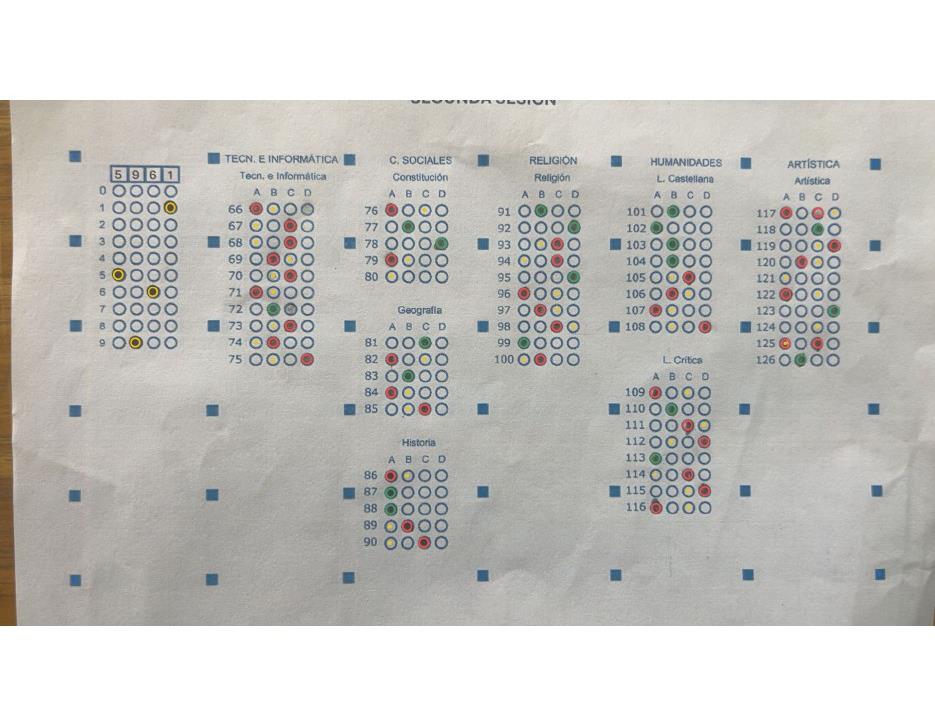 SEGUNDA SESIÓN
5 9 6 1
0
1
2
3
4
5
6
7
8
9
TECN. E INFORMÁTICA
Tecn. e Informática
A B C D
66
67
68
69
70
71
72
73
74
75
C. SOCIALES
Constitución
A B C D
76
77
78
79
80
Geografía
A B C D
81
82
83
84
85
Historia
A B C D
86
87
88
89
90
RELIGIÓN
Religión
A B C D
91
92
93
94
95
96
97
98
99
100
HUMANIDADES
L. Castellana
A B C D
101
102
103
104
105
106
107
108
L. Crítica
A B C D
109
110
111
112
113
114
115
116
ARTÍSTICA
Artística
A B C D
117
118
119
120
121
122
123
124
125
126